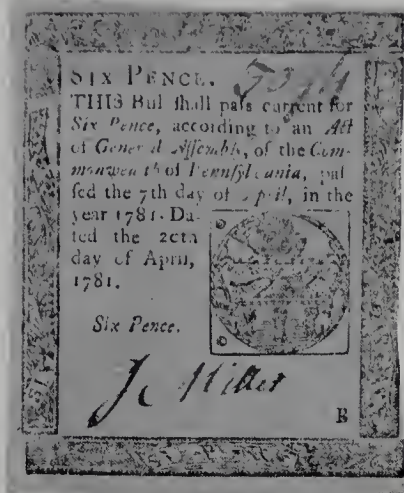 SIX PENCE.
THIS Bill ſhall paſs current for
Six Pence, according to an Act
of General Aſſembly, of the Com-
monwealth of Pennſylvania, paſ
ſed the 7th day of April, in the
year 1781. Da-
ted the 20th
day of April,
1781.
Six Pence.
Miller
B